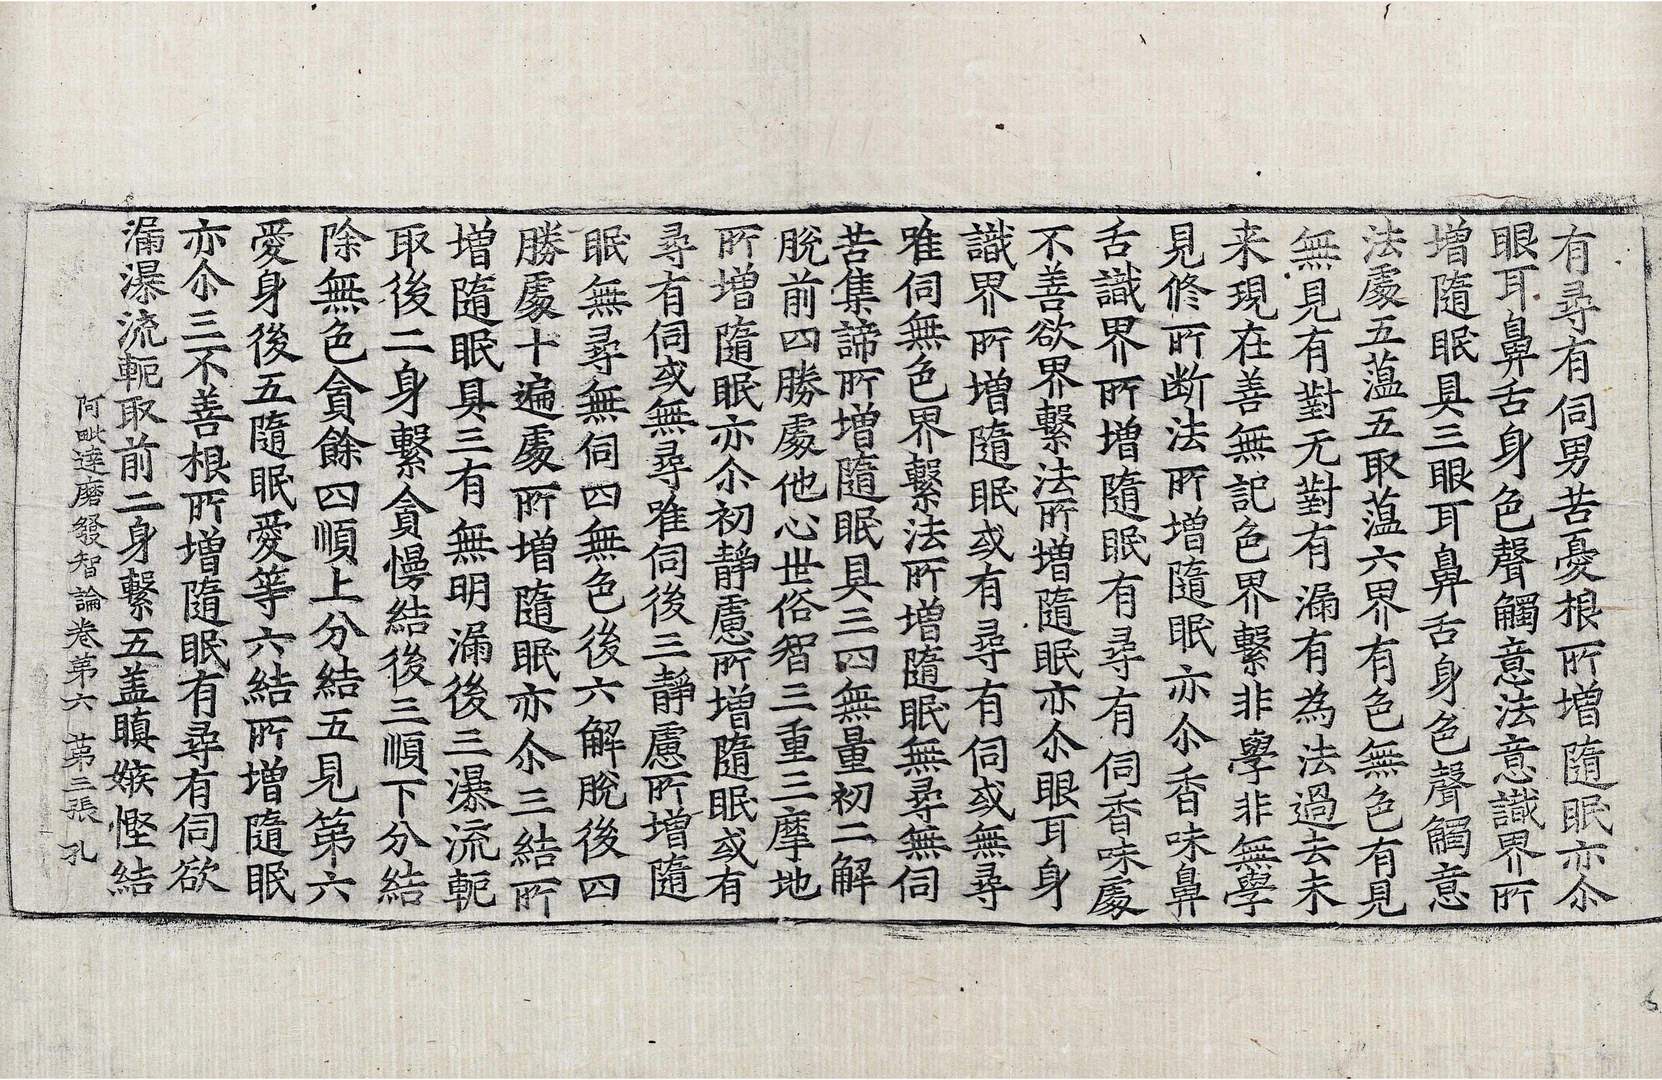 有尋有伺男苦憂根所増隨眠亦尒
眼耳鼻舌身色聲觸意法意識界所
増隨眠具三眼耳鼻舌身色聲觸意
法處五蕰五取蕰六界有色無色有見
無見有對无對有漏有為法過去未
来現在善無記色界繫非學非無學
見修所断法所増隨眠亦尒香味鼻
舌識界所増隨眠有尋有伺香味處
不善欲界繫法所増隨眠亦尒眼耳身
識界所増隨眠或有尋有伺或無尋
唯伺無色界繫法所増隨眠無尋無伺
苦集諦所増隨眠具三四無量初二解
脫前四勝處他心世俗智三重三摩地
所増隨眠亦尒初靜慮所増隨眠或有
尋有伺或無尋唯伺後三靜慮所増隨
眠無尋無伺四無色後六解脫後四
勝處十遍處所増隨眠亦尒三結所
増隨眠具三有無明漏後三瀑流軛
取後二身繫貪慢結後三順下分結
除無色貪餘四順上分結五見第六
愛身後五隨眠愛等六結所増隨眠
亦尒三不善根所増隨眠有尋有伺欲
漏瀑流軛取前二身繫五盖瞋嫉慳結
阿毗達磨發智論卷第六 苐三張 孔